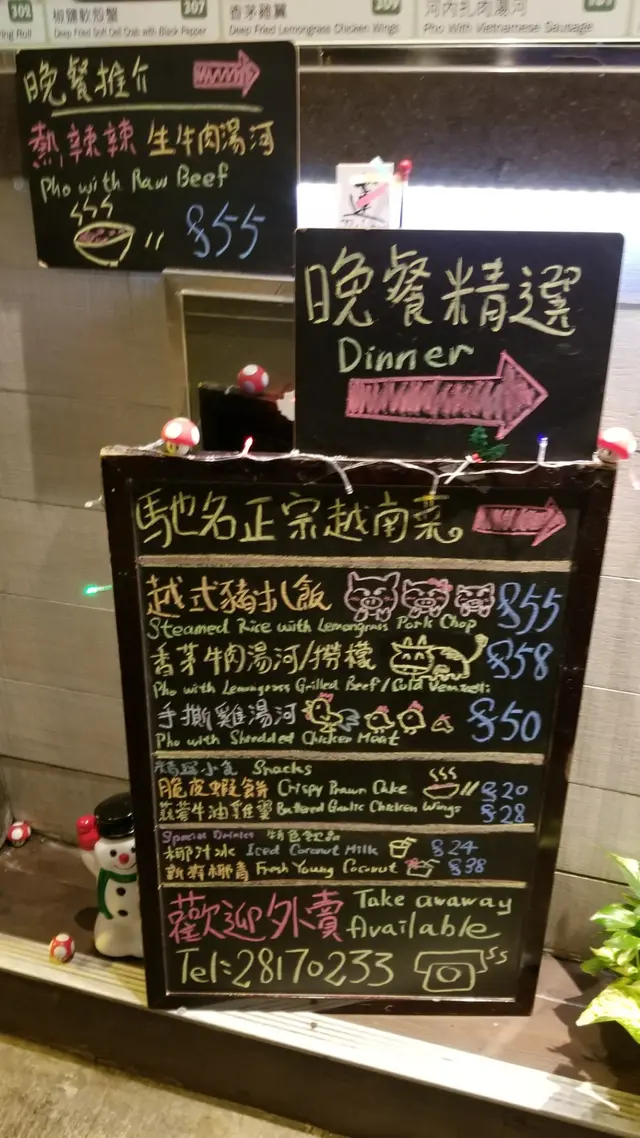 302
307
椒鹽軟殼蟹
香茅雞翼
河內扎肉湯河
ring Roll
Deep Fried Soft Cell Crab with Black Pepper
Deep Fried Lemongrass Chicken Wings
Pho With Vietnamese Sausage
晚餐推介
熱辣辣 生牛肉湯河
Pho with Raw Beef
$55
晚餐精選
Dinner
馳名正宗越南菜。
越式豬扒飯 $55
Steamed Rice with Lemongrass Pork Chop
香茅牛肉湯河/撈檬 $58
Pho with Lemongrass Grilled Beef/Cold Vermicelli
手撕雞湯河 $50
Pho with Shredded Chicken Meat
精選小食 Snacks
脆皮蝦餅 Crispy Prawn Cake $20
蒜蓉牛油雞翼 Buttered Garlic Chicken Wings $28
Special Drinks 特色飲品
椰汁冰 Iced Coconut Milk $24
新鮮椰青 Fresh Young Coconut $38
歡迎外賣 Take awaway
Available
Tel:28170233